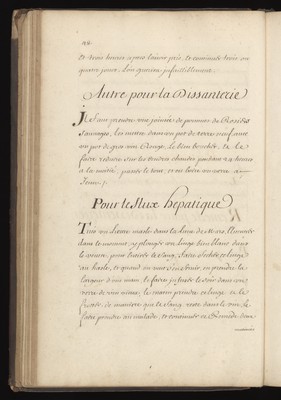 et trois heures apres l'avoir pris, et continuer trois ou
quatre jours, l'on guerira infailliblement.
Autre pour la Dissanterie
Il faut prendre une poignée de pommes de Rosiers
Sauvages, les mettre dans un pot de terre neuf avec
un pot de gros vin Rouge, le bien boucher, et le
faire reduire sur les cendres chaudes pendant 24 heures
à la moitié, passer le tout, et en boire un verre a
Jeun.
Pour le flux hepatique
Tuer un Lievre masle dans la Lune de Mars, l'Eventrer
dans le moment, et plonger un linge bien blanc dans
le ventre, pour boire le Sang, faire secher ce linge
au hasle, et quand on veut s'en servir, en prendre la
largeur d'une main, le faire tremper le soir dans un
verre de vin vieux, le matin prendre ce linge et le
presser, de maniere que le Sang reste dans le vin, le
faire prendre au malade, et continuer ce Remede deux